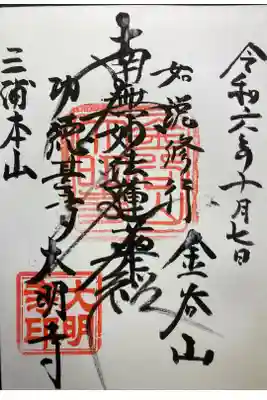 令和六年十月七日
金谷山
如説修行
南無妙法蓮華経
功徳甚多
大明寺
三浦本山
大明寺印